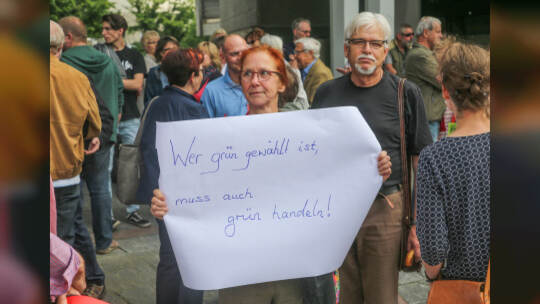 Wer grün gewählt ist,
muss auch
grün handeln!